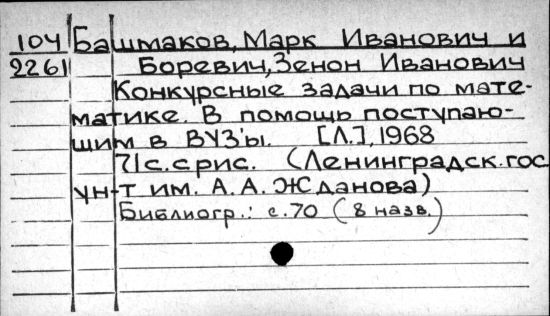 104 Башмаков, Марк Иванович и
2261 Боревич, Зенон Иванович
Конкурсные задачи по мате-
матике. В помощь поступаю-
щим в ВУЗ'ы. [Л.], 1968
71с. с рис. (Ленинградск. гос.
ун-т им. А. А. Жданова)
Библиогр.: с. 70 (8 назв.)